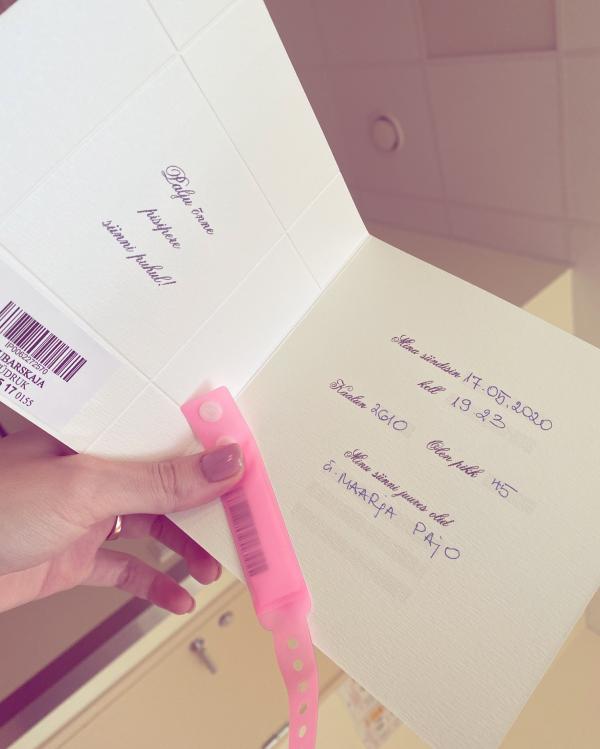 Palju õnne
pisipere
sünni puhul!
IP0062272570
UBARSKAJA
TÜDRUK
17 0155
Mina sündisin 17.05.2020
kell 19 23
Kaalun 2610
Olen pikk 45
Minu sünni juures olid
ä. MAARJA PAJO